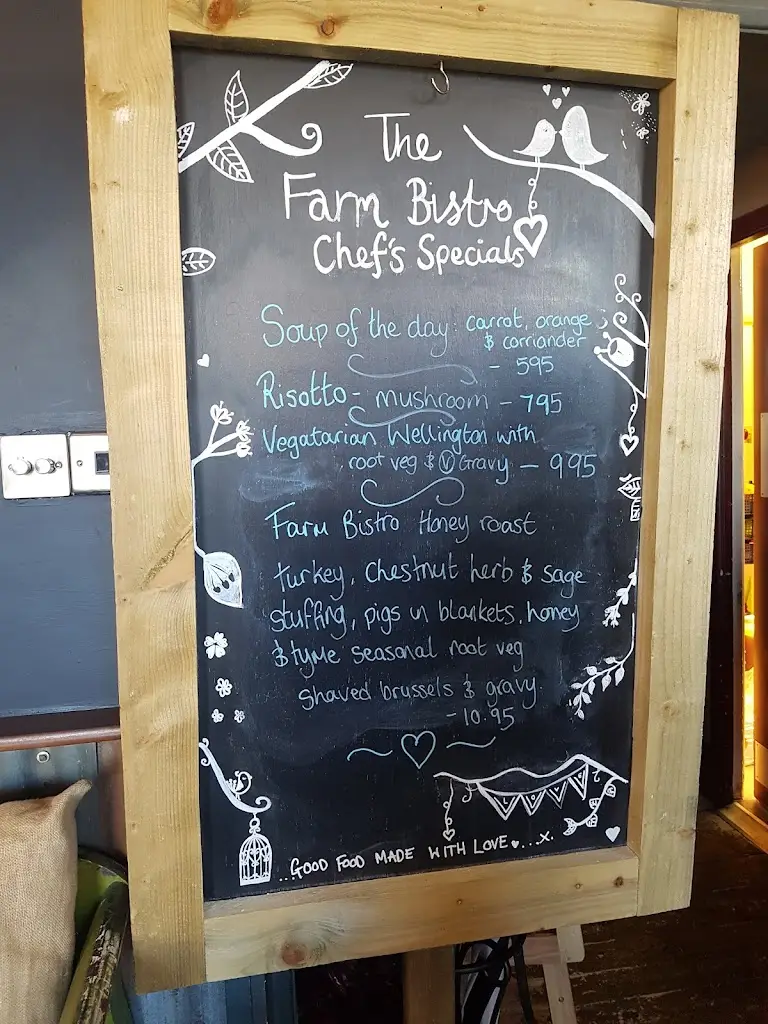 The
Farm Bistro
Chef's Specials
Soup of the day: carrot, orange
& corriander
- 595
Risotto - mushroom - 795
Vegatarian Wellington with
root veg & Ⓥ Gravy - 995
Farm Bistro Honey roast
turkey, chestnut herb & sage
stuffing, pigs in blankets, honey
& tyme seasonal root veg
shaved brussels & gravy
- 10.95
...GOOD FOOD MADE WITH LOVE♥...x.